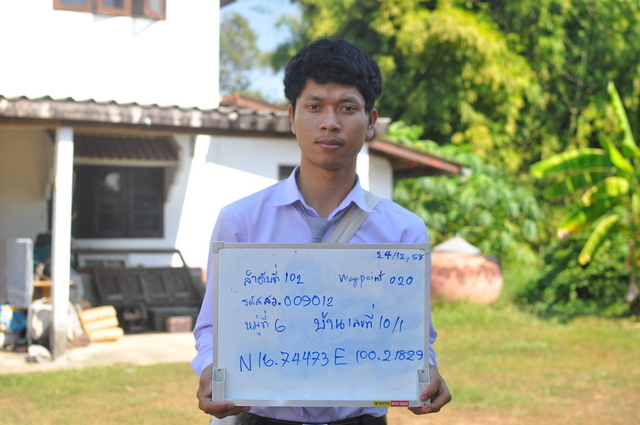 24/12/58
ลำดับที่ 102 Waypoint 020
รหัสสอ. 009012
หมู่ที่ 6 บ้านเลขที่ 10/1
N 16.74473 E 100.21829